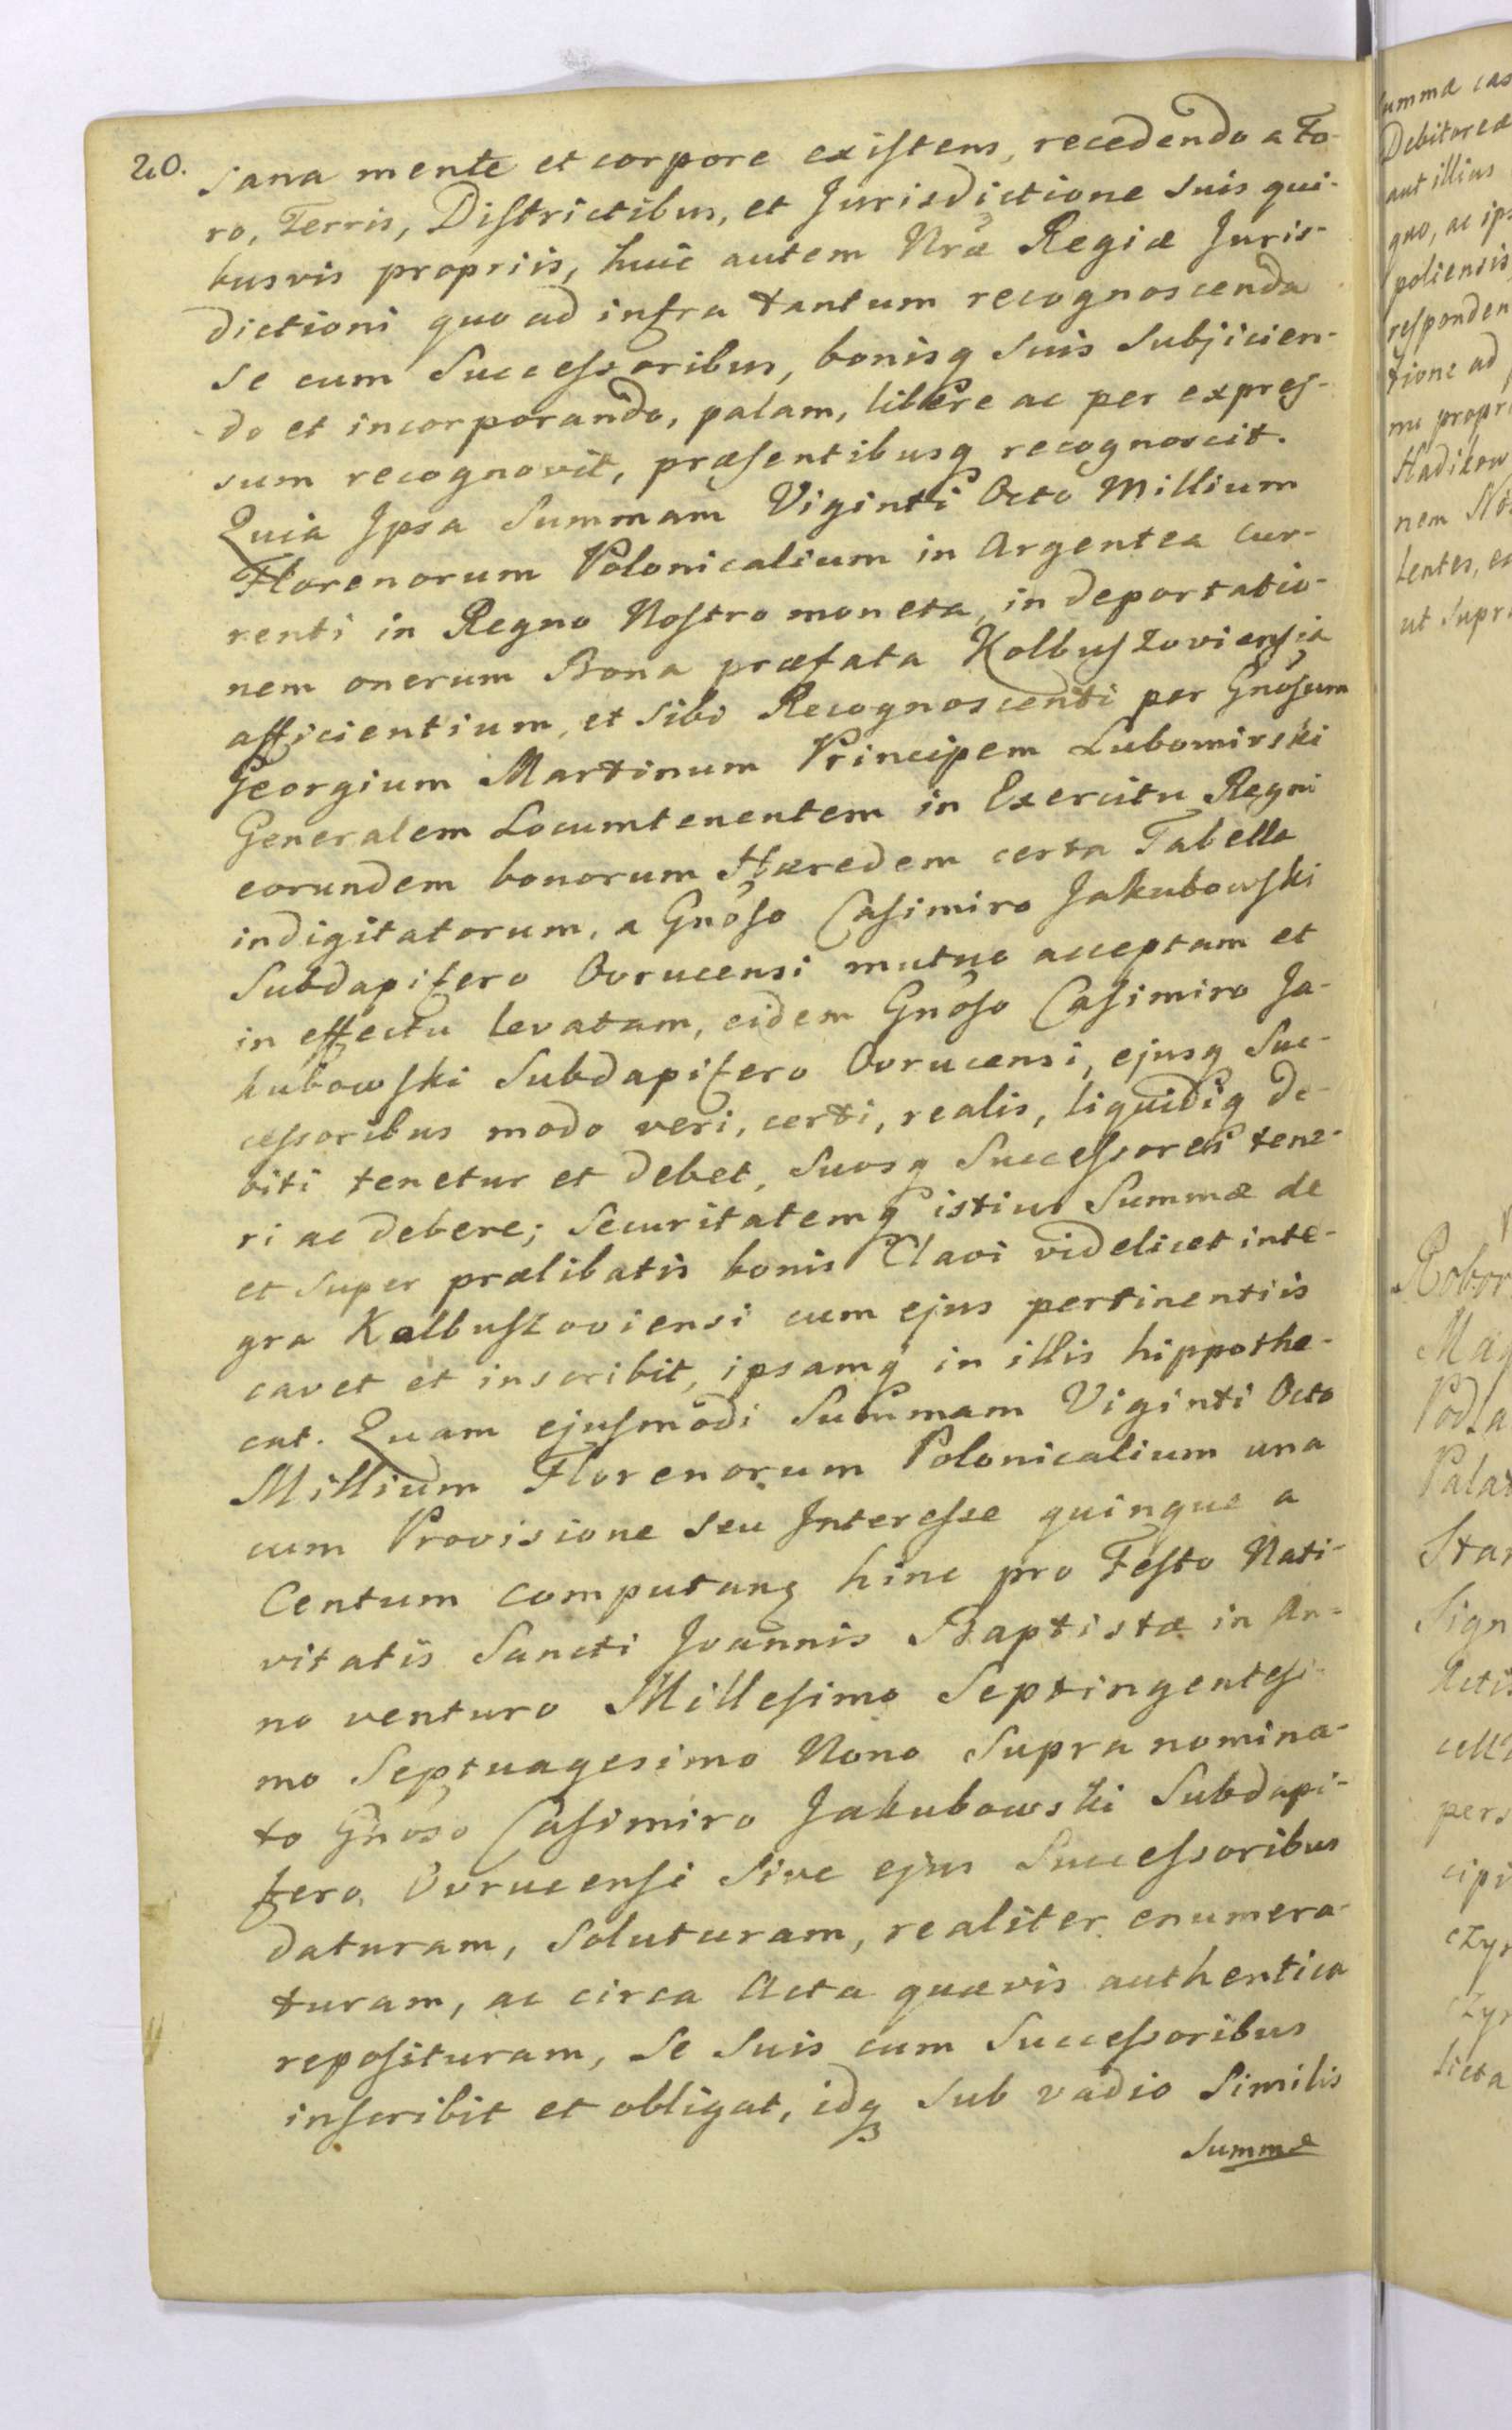 20.
Sana mente et corpore existens, recedendo a Fo-
ro, Terris, Districtibus, et Jurisdictione Suis qui-
busvis propriis, huic autem Nræ Regiæ Juris-
dictioni quo ad infra tantum recognoscenda
Se cum Successoribus, bonisq Suis Subjicien-
do et incorporando, palam, libere ac per expres-
sum recognovit, præsentibusq recognoscit.
Quia Ipsa Summam Viginti Octo Millium
Florenorum Polonicalium in Argentea cur-
renti in Regno Nostro moneta, in deportatio-
nem onerum Bona præfata Kolbuszoviensia
afficientium, et Sibi Recognoscenti per Gnosum
Georgium Martinum Principem Lubomirski
Generalem Locumtenentem in Exercitu Regni
eorundem bonorum Hæredem certa Tabella
indigitatorum, a Gnoso Casimiro Jakubowski
Subdapifero Ovrucensi mutuo acceptam et
in effectu levatam, eidem Gnoso Casimiro Ja-
kubowski Subdapifero Ovrucensi, ejusq Suc-
cessoribus modo veri, certi, realis, liquidiq de-
biti tenetur et debet, Suosq Successores tene-
ri ac debere; Securitatemq istius Summæ de
et super prælibatis bonis Clavi videlicet inte-
gra Kolbuszoviensi cum ejus pertinentiis
cavet et inscribit, ipsamq in illis hippothe-
cat. Quam ejusmodi Summam Viginti Octo
Millium Florenorum Polonicalium una
cum Provisione seu Interesse quinque a
Centum computanq hinc pro Festo Nati-
vitatis Sancti Joannis Baptistæ in An-
no venturo Millesimo Septingentesi-
mo Septuagesimo Nono Supra nomina-
to Gnoso Casimiro Jakubowski Subdapi-
fero Ovrucensi Sive ejus Successoribus
daturam, Soluturam, realiter enumera-
turam, ac circa Acta quævis authentica
reposituram, Se Suis cum Successoribus
inscribit et obligat, idq Sub vadio Similis
Summæ
umma cas
Debitorea
aut illius
quo, ac ip
poliensis
responden
tione ad
mu propri
Hadikow
nem No
lentes, e
ut Supr
Robor
Mag
Podla
Palat
Star
Sign
Actit
pers
cipi
czyn
czyn
licta